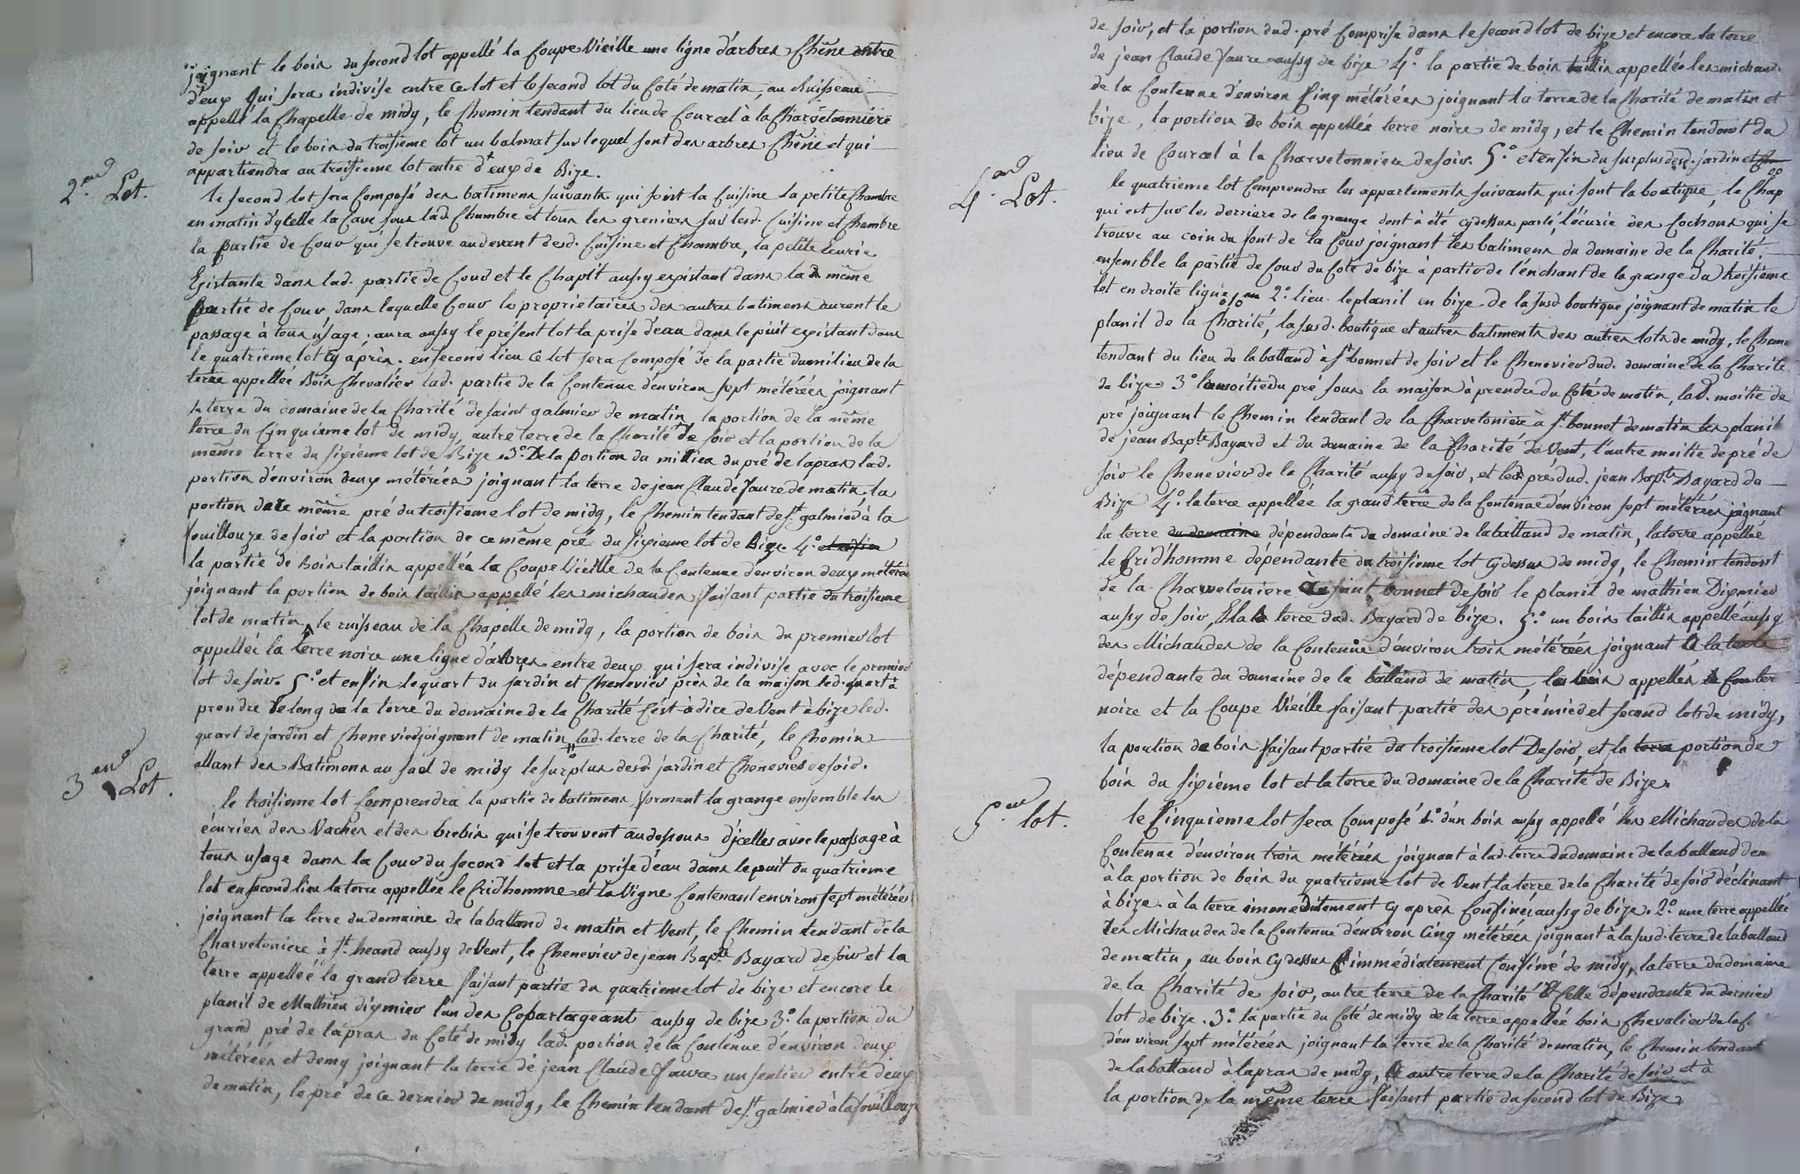 joignant le bois du second lot appellé la Coupe Vieille une ligne d'arbres Chêne entre
d'eux qui sera indivise entre ce lot et le second lot du Coté de matin, au Ruisseau
appellé la Chapelle de midy, le Chemin tendant du lieu de Courcel à la Charvetonniere
de soir et le bois du troisieme lot un balmat sur lequel sont des arbres Chêne et qui
appartiendra au troisieme lot entre d'eux de Bize.
2.eme Lot.
le second lot sera Composé des batimens suivants qui sont la Cuisine la petite Chambre
en matin d'ycelle la Cave sous lad Chambre et tous les greniers sur lesd. Cuisine et Chambre
la partie de Cour qui se trouve au devant desd. Cuisine et Chambre, la petite Ecurie
Existante dans lad. partie de Cour et le Chapit aussy existant dans lad même
partie de Cour dans laquelle Cour les propriétaires des autres batimens auront le
passage à tous usage; aura aussy le présent lot la prise d'eau dans le puit existant dans
le quatrieme lot Cy après. en second lieu Ce lot sera Composé de la partie du milieu de la
terre appellée Bois Chevalier lad. partie de la Contenue d'environ sept métérées joignant
la terre du domaine de la Charité de saint galmier de matin, la portion de la même
terre du Cinquieme lot de midy, autre terre de la Charité de soir et la portion de la
même terre du sixieme lot de Bize. 3.° De la portion du millieu du pré de lapras lad.
portion d'environ deux métérées joignant la terre de jean Claude faure de matin, la
portion de Ce même pré du troisieme lot de midy, le Chemin tendant de St. galmier à la
fouillouze de soir et la portion de ce même pré du sixieme lot de Bize 4.° et enfin
la partie de Bois taillis appellée la Coupe Vieille de la Contenue d'environ deux métérées
joignant la portion de bois taillis appellé les michaudes faisant partie du troisieme
lot de matin, le ruisseau de la Chapelle de midy, la portion de bois du premier lot
appellée la terre noire une ligne d'arbres entre deux qui sera indivise avec le premier
lot de soir. 5.° et enfin le quart du jardin et Chenevier près de la maison led. quart à
prendre le long de la terre du domaine de la Charité C'est à dire de Vent à bize led.
quart de jardin et Chenevier joignant de matin lad. terre de la Charité, le Chemin
allant des Batimens au de midy le surplus desd. jardin et Chenevier de soir.
3.eme Lot.
le troisieme lot Comprendra la partie de batimens formant la grange ensemble les
écuries des Vaches et des brebis qui se trouvent au dessous d'ycelles avec le passage à
tous usage dans la Cour du second lot et la prise d'eau dans le puit du quatrieme
lot en second lieu la terre appellée le Cridhomme et la Vigne Contenant environ sept métérées
joignant la terre du domaine de laballand de matin et Vent, le Chemin tendant de la
Charvetoniere à St. heand aussy de Vent, le Chenevier de jean Bapte. Bayard de soir et la
terre appellée la grand terre faisant partie du quatrieme lot de bize et encore le
planil de Mathieu digmier l'un des Copartageant aussy de bize 3.° la portion du
grand pré de lapras du Coté de midy lad. portion de la Contenue d'environ deux
métérées et demy joignant la terre de jean Claude faure un sentier entre deux
de matin, le pré de ce dernier de midy, le Chemin tendant de St. galmier à la fouillouze
de soir, et la portion dud. pré Comprise dans le second lot de bize et encore la terre
de jean Claude faure aussy de bize 4.° la partie de bois taillis appellée les michaudes
de la Contenue d'environ Cinq métérées joignant la terre de la Charité de matin et
bize, la portion de bois appellée terre noire de midy, et le Chemin tendant du
lieu de Courcel à la Charvetonniere de soir. 5.° et enfin du surplus desd. jardin et
4.eme Lot.
le quatrieme lot Comprendra les appartements suivants qui sont la boutique, le Chap
qui est sur les derriere de la grange dont à été cy dessus parlé, l'écurie des Cochons qui se
trouve au coin du font de la Cour joignant les batimens du domaine de la Charité.
ensemble la partie de Cour du Coté de bize à partir de l'enchant de la grange du troisieme
lot en droite ligne en 2.° lieu le planil en bize de la susd. boutique joignant de matin le
planil de la Charité, lasusd. boutique et autres batiments des autres lots de midy, le Chemin
tendant du lieu de laballand à St. bonnet de soir et le Chenevier dud. domaine de la Charité
de bize 3.° la moitie du pré sous la maison à prendre du Coté de matin, lad. moitié de
pré joignant le Chemin tendant de la Charvetoniere à St. bonnet de matin les planil
de jean Bapte Bayard et du domaine de la Charité de Vent, l'autre moitié de pré de
soir le Chenevier de la Charité aussy de soir, et led. pré dud. jean Bapte. Bayard de
Bize 4.° la terre appellée la grand terre de la Contenue d'environ sept métérées joignant
la terre du domaine dépendante du domaine de laballand de matin, la terre appellée
le Cridhomme dépendante du troisieme lot Cy dessus de midy, le Chemin tendant
de la Charvetoniere à saint bonnet de soir le planil de mathieu Digmier
aussy de soir, Et la terre dud. Bayard de bize. 5.° un bois taillis appellé aussy
des Michaudes de la Contenue d'environ trois métérées joignant à la terre
dépendante du domaine de la balland de matin, le bois appellés la terre
noire et la Coupe Vieille faisant partie des prémier et second lots de midy,
la portion de bois faisant partie du troisieme lot De soir, et la terre portion de
bois du sixieme lot et la terre du domaine de la Charité de Bize.
5.eme lot.
le Cinquieme lot sera Composé 1.° d'un bois aussy appellé les Michaudes de la
Contenue d'environ trois métérées joignant à lad. terre du domaine de laballand de m
à la portion de bois du quatrieme lot de Vent la terre de la Charité de soir déclinant
à bize. à la terre immédiatement cy après Confinée aussy de bize. 2.° une terre appellée
les Michaudes de la Contenue d'environ Cinq métérées joignant à la susd. terre de laballand
de matin, au bois cy dessus immédiatement Confiné de midy, la terre du domaine
de la Charité de soir, autre terre de la Charité & Celle dépendante du dernier
lot de bize. 3.° la partie du Coté de midy de la terre appellée bois Chevalier de la C.
d'environ sept métérées joignant la terre de la Charité de matin, le Chemin tendant
de laballand à lapras de midy, autre terre de la Charité de soir et à
la portion de la même terre faisant partie du second lot de Bize.